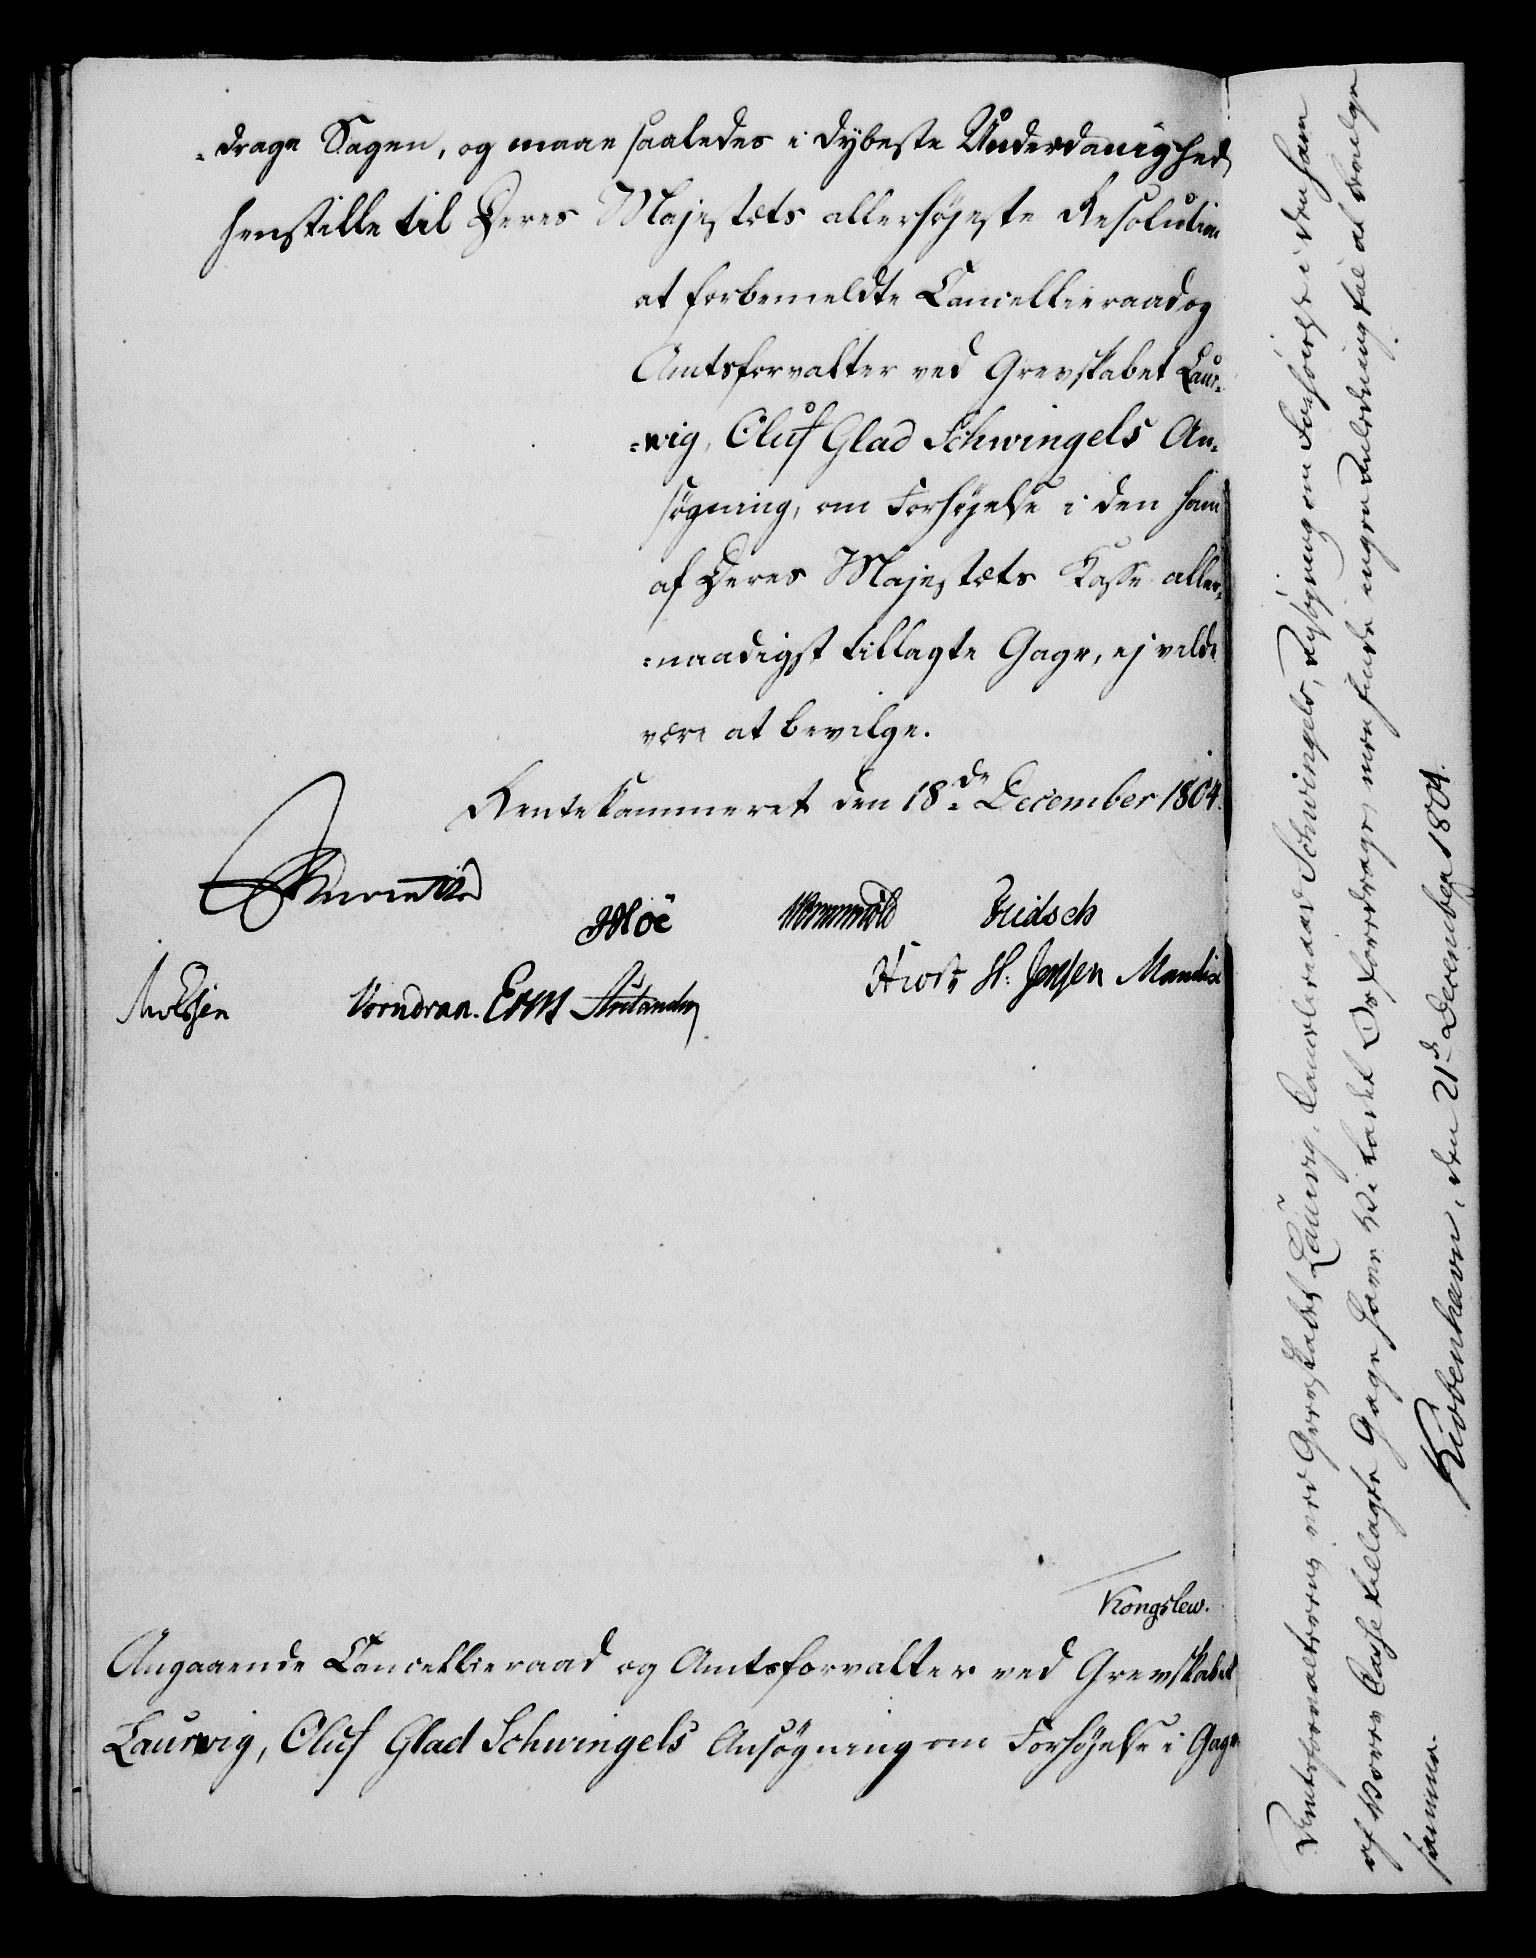 =drage Sagen, og maae saaledes i dybeste Underdanighed
henstille til Deres Majestæts allerhøjeste Resolution
at forbemeldte Cancellieraad og
Amtsforvalter ved Grevskabet Laur=
=vig, Oluf Glad Schwingels An=
søgning, om Forhøjelse i den ham
af Deres Majestæts Kasse aller=
=naadigst tillagte Gage, ej vilde
være at bevilge.
Rentekammeret den 18de December 1804.
Moe Wormskiold Fridsch
Vorndran. Hiort H: Jensen Mandix
Kongslew.
Angaaende Cancellieraad og Amtsforvalter ved Grevskabet
Laurvig, Oluf Glad Schwingels Ansøgning om Forhøjelse i Gage
Amtsforvalteren ved Grevskabet Laurvig, Cancelieraad Schwingels, Ansøgning om Forhøielse i den ham
af Vores Casse tillagte Gage have Vi ladet Os foredrage, men finde ingen Anledning til at bevilge
samme.
Kiøbenhavn, den 21de December 1804.